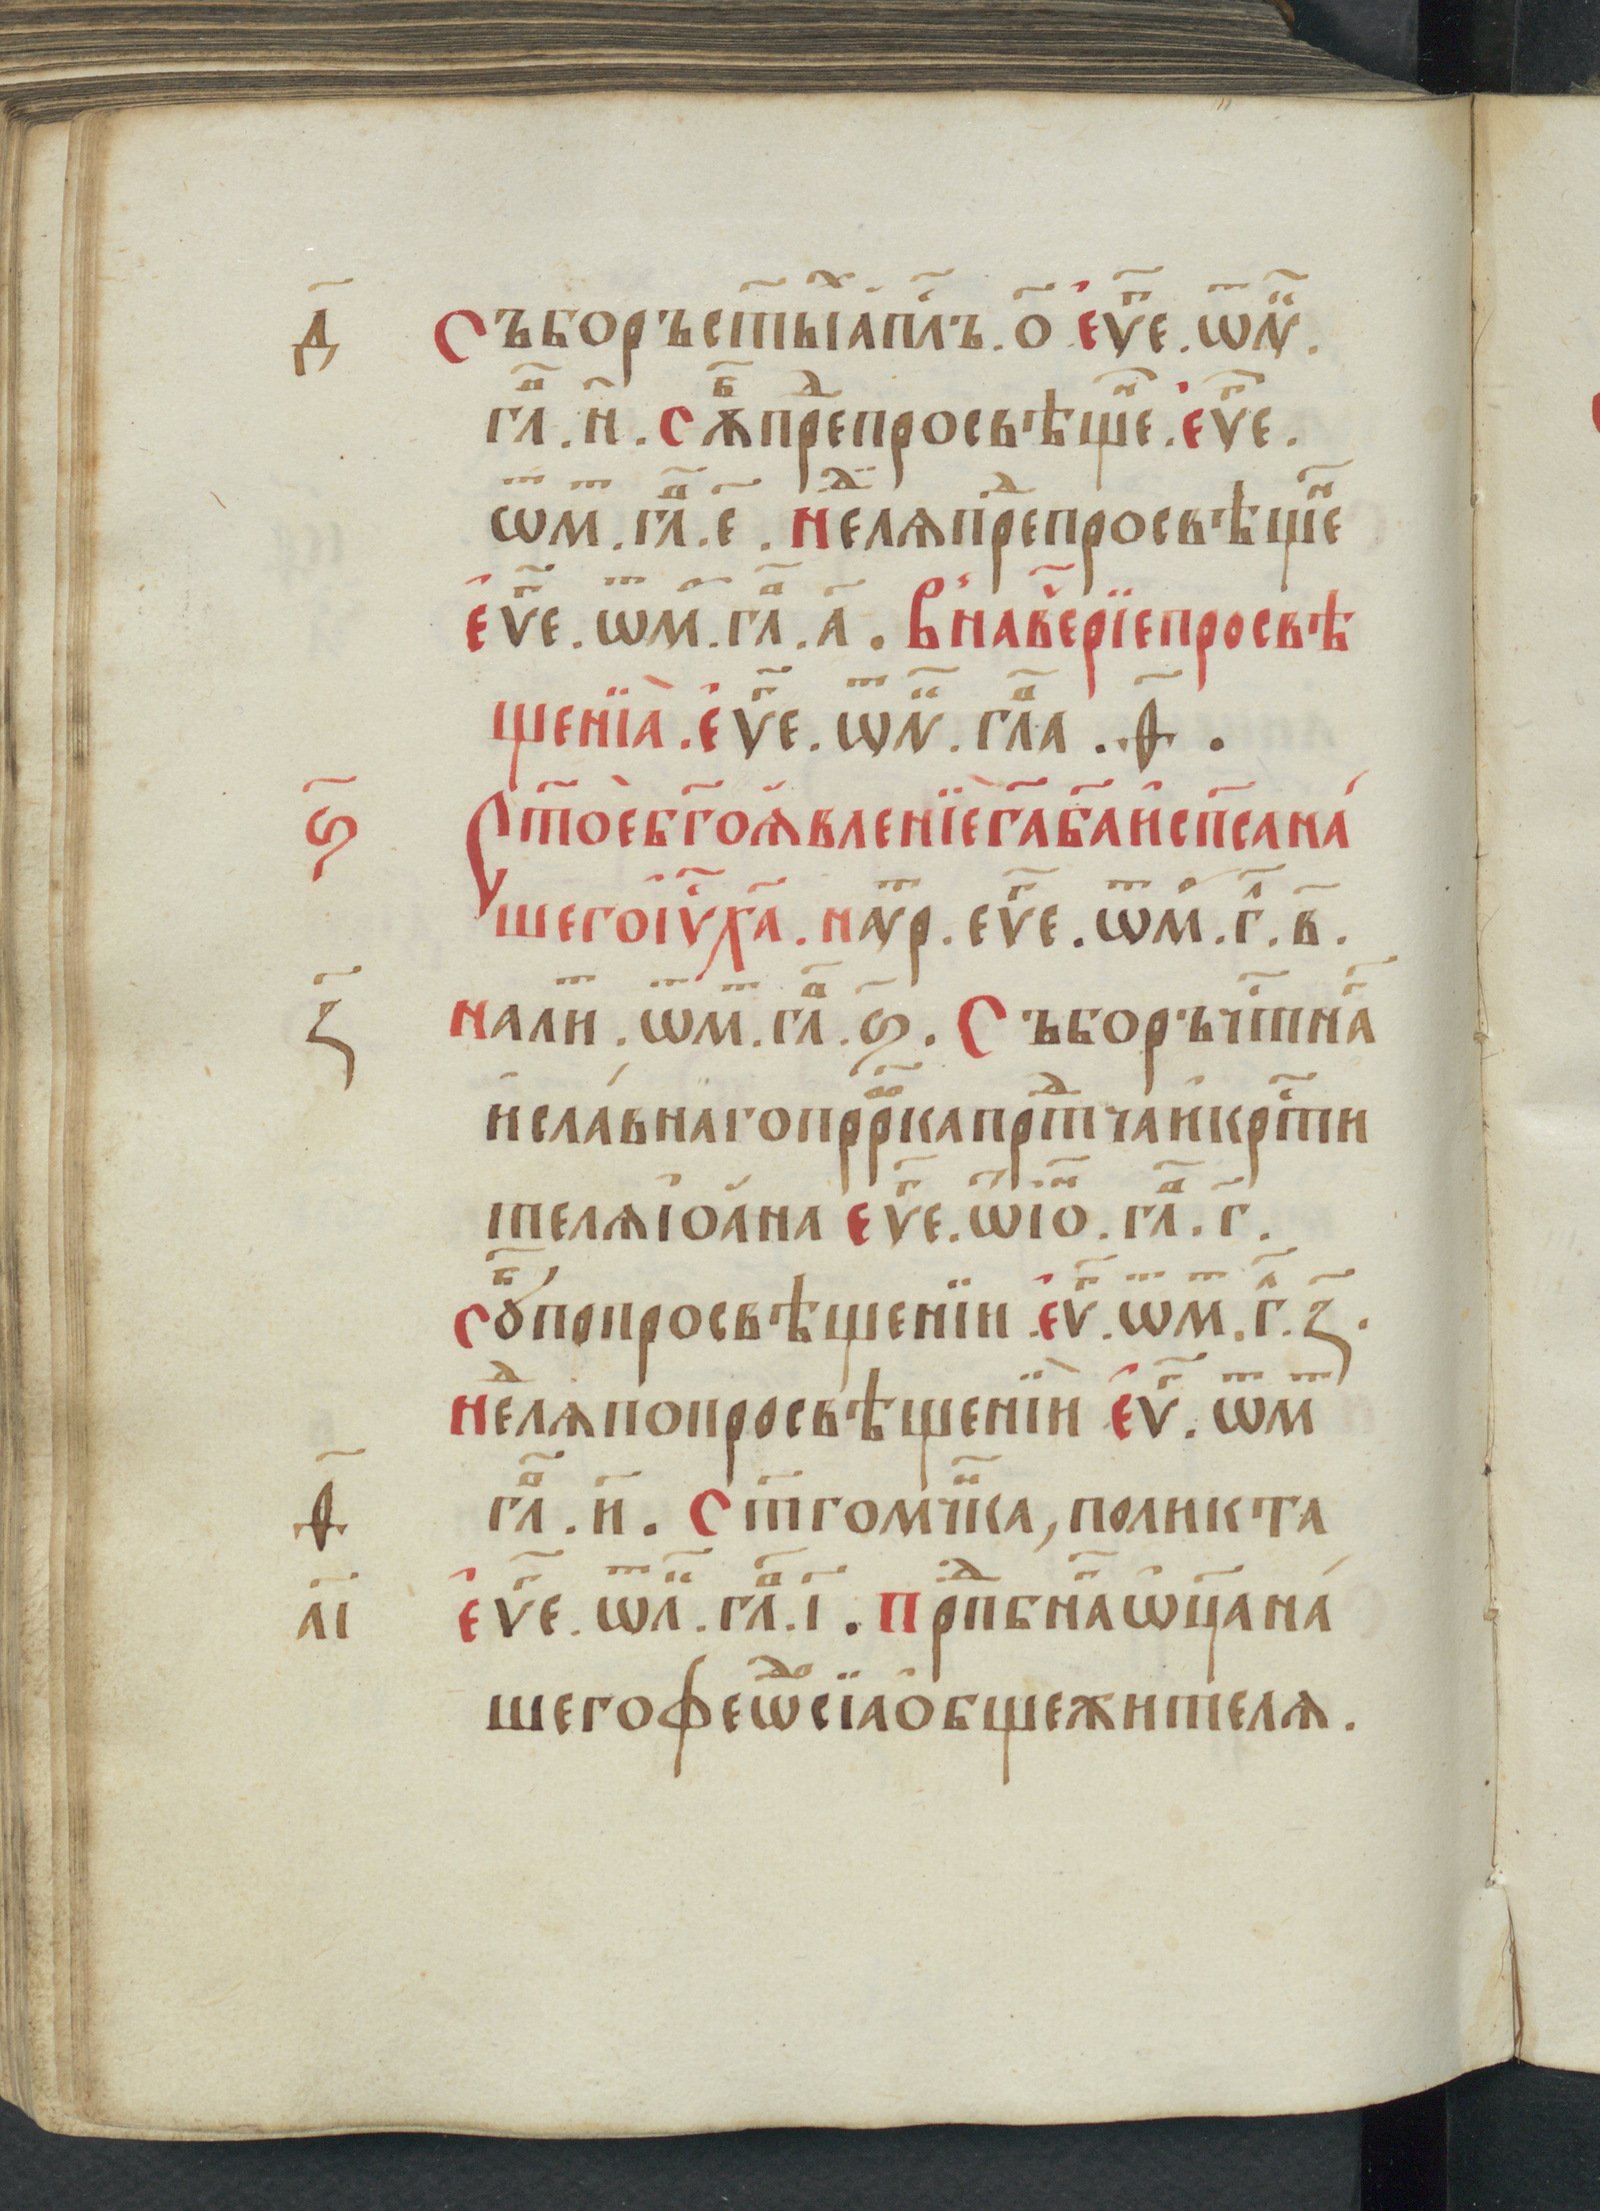 д҃ Съборъст҃ыⷯа҆пⷭ҇лъ. о҃ є҆ѵⷢ҇е. ѿ мⷣ҇.
глⷡ҇. и҃. Сѫⷠ҇преⷣпросвѣщеⷩ҇. є҆ѵⷢ҇е.
ѿ мⷮ. глⷡ҇. е҃. Нелѧⷣпреⷣпросвѣщеⷩ҇
є҆ѵⷢ҇е. ѿ мⷬ. глⷡ҇. а҃. В̾наве҇рїепросвѣ
щенїа̀. є҆ѵⷢ҇е. ѿ л. глⷡ҇а. ѳ҃.
ѕ҃ Ст҃о̀ебг҃оꙗ҆вленїѐг҃аб҃аи҆сп҃сана́
шегоі҆ѵ҃х҃а. наѵⷮр. еѵⷢ҇е. ѿ мⷬ. гⷧ҇. в҃.
з҃ налиⷮ. ѿ мⷮ. глⷡ҇. ѕ҃. Съборъчⷭ҇тнаⷢ҇
и҆сла́внагопрⷪ҇ркапрⷣтчаи҆крⷭ҇ти
телѧі҆оа́на еѵⷢ҇е. ѿ іѡⷩ҇. глⷡ҇. г҃.
Сꙋⷠ҇попросвѣщенїи. є҆ѵⷢ҇. ѿ мⷮ. гⷧ҇. з҃.
Неⷣлѧпопросвѣщенїи є҆ѵⷢ҇. ѿ мⷮ
ѳ҃ глⷡ҇. и҃. Ст҃гомчⷩ҇ка, поликта
а҃і є҆ѵⷢ҇е. ѿ лⷦ҇. глⷡ҇. і҃. Прпⷣбнаⷢ҇ѡ҆ц҃ана́
шегофеѡⷣсїаѻ҆бщежителѧ.